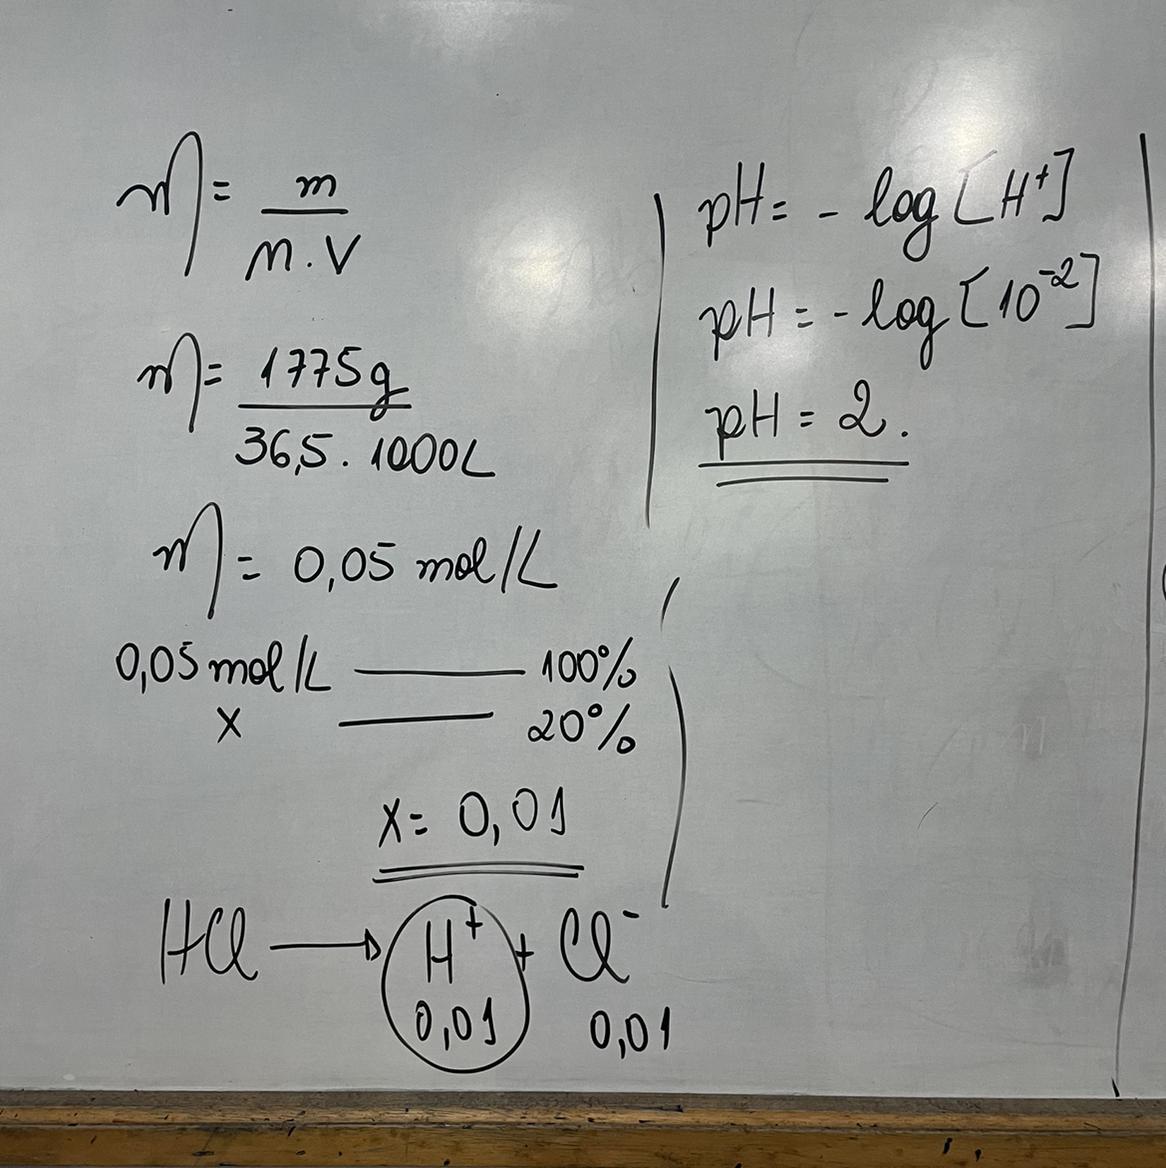 M = m / M . V
M = 1775g / 36,5 . 1000L
M = 0,05 mol/L
0,05 mol/L —— 100%
x —— 20%
x = 0,01
HCl → H⁺ + Cl⁻
0,01 0,01
pH = - log [H⁺]
pH = - log [10⁻²]
pH = 2.